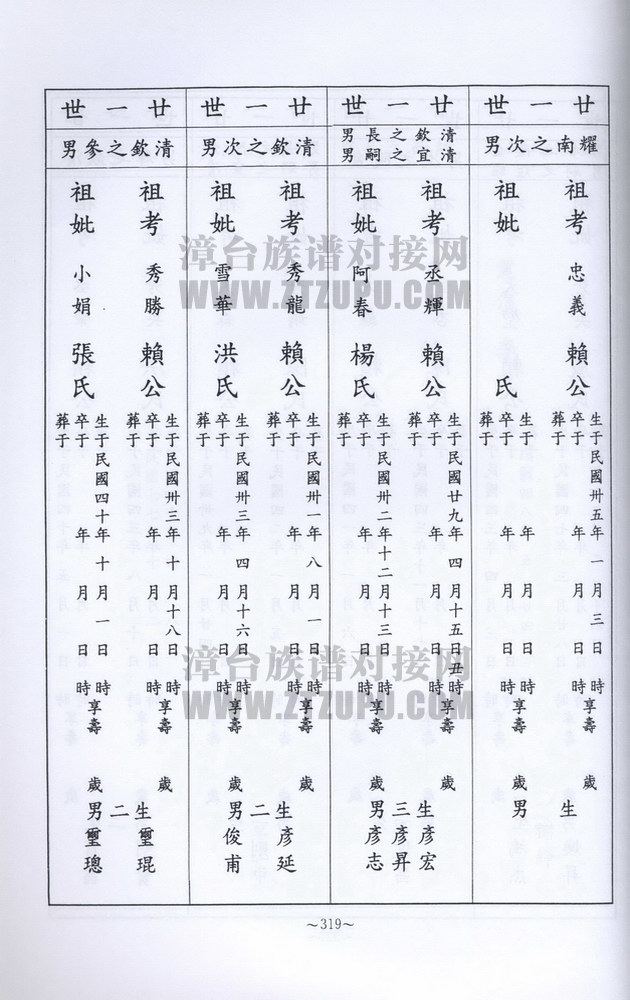 廿一世
耀南之次男
祖考 忠義 賴公
生于民國卅五年一月三日 時
卒于 年 月 日 時享壽 歲
葬于
祖妣 氏
生于 年 月 日 時
卒于 年 月 日 時享壽 歲
葬于
生 男
廿一世
清欽之長男
清宜之嗣男
祖考 丞輝 賴公
生于民國廿九年四月十五日丑時
卒于 年 月 日 時享壽 歲
葬于
祖妣 阿春 楊氏
生于民國卅二年十二月十三日 時
卒于 年 月 日 時享壽 歲
葬于
生三男
彥宏
彥昇
彥志
廿一世
清欽之次男
祖考 秀龍 賴公
生于民國卅一年八月一日 時
卒于 年 月 日 時享壽 歲
葬于
祖妣 雪華 洪氏
生于民國卅三年四月十六日 時
卒于 年 月 日 時享壽 歲
葬于
生二男
彥延
俊甫
廿一世
清欽之參男
祖考 秀勝 賴公
生于民國卅三年十月十八日 時
卒于 年 月 日 時享壽 歲
葬于
祖妣 小娟 張氏
生于民國四十年十月一日 時
卒于 年 月 日 時享壽 歲
葬于
生二男
璽琨
璽璁
～319～
漳台族谱对接网
WWW.ZTZUPU.COM
漳台族谱对接网
WWW.ZTZUPU.COM